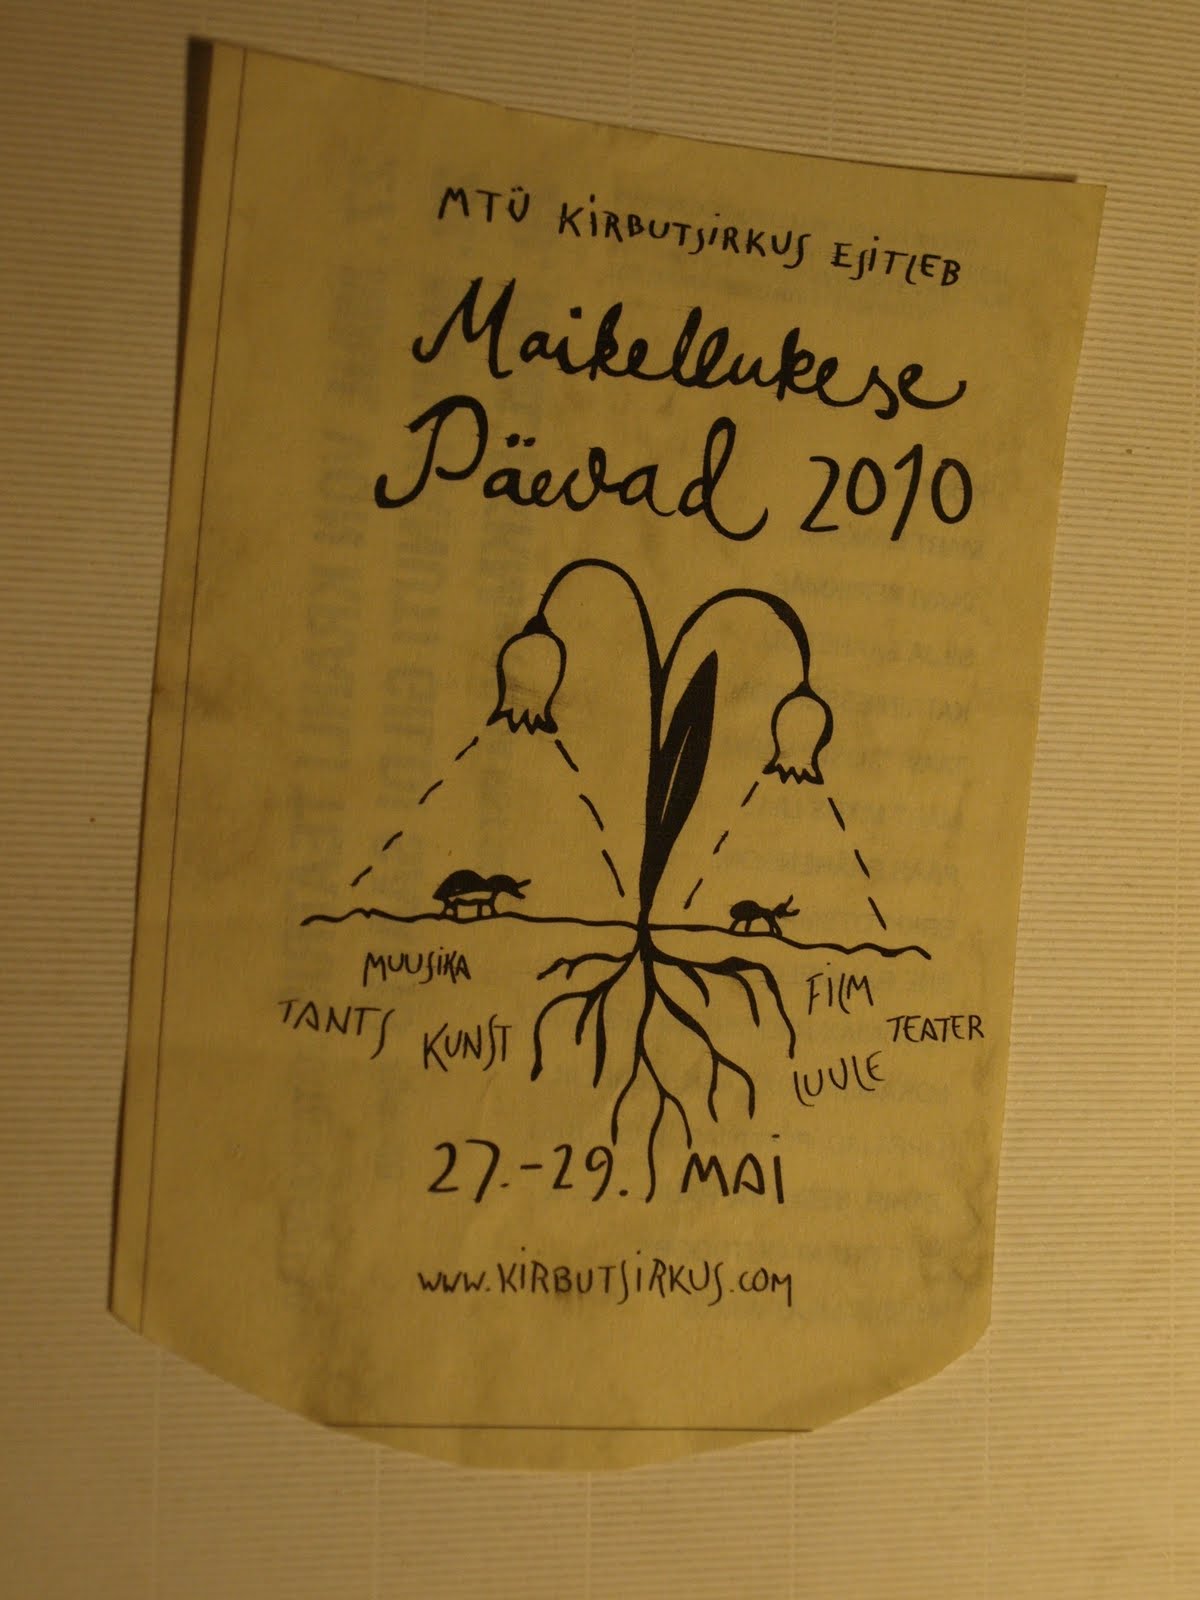 MTÜ KIRBUTSIRKUS ESITLEB
Maikellukese
Päevad 2010
MUUSIKA
TANTS
KUNST
FILM
TEATER
LUULE
27.-29. MAI
www.KIRBUTSIRKUS.COM